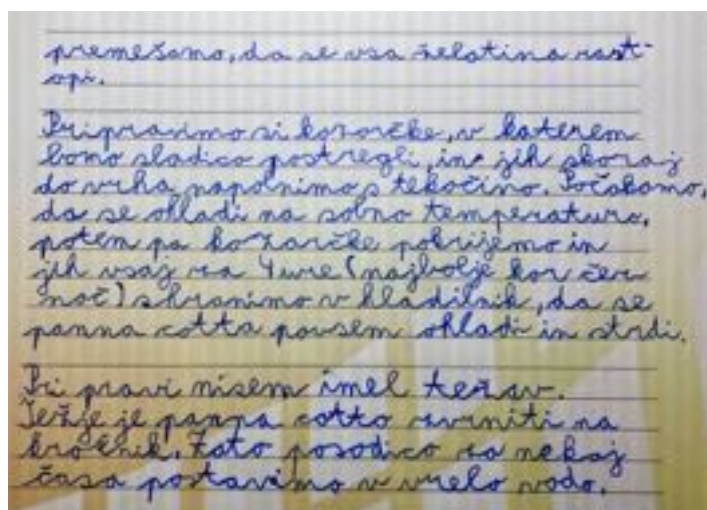 premešamo, da se vsa želatina rast-
opi.
Pripravimo si kozarčke, v katerem
bomo sladico postregli, in jih skoraj
do vrha napolnimo s tekočino. Počakamo,
da se ohladi na sobno temperaturo,
potem pa kozarčke pokrijemo in
jih vsaj za 4 ure (najbolje kar čez
noč) shranimo v hladilnik, da se
panna cotta povsem ohladi in strdi.
Pri pravi nisem imel težav.
Težje je panna cotto zvrniti na
krožnik. Zato posodico za nekaj
časa postavimo v vrelo vodo.